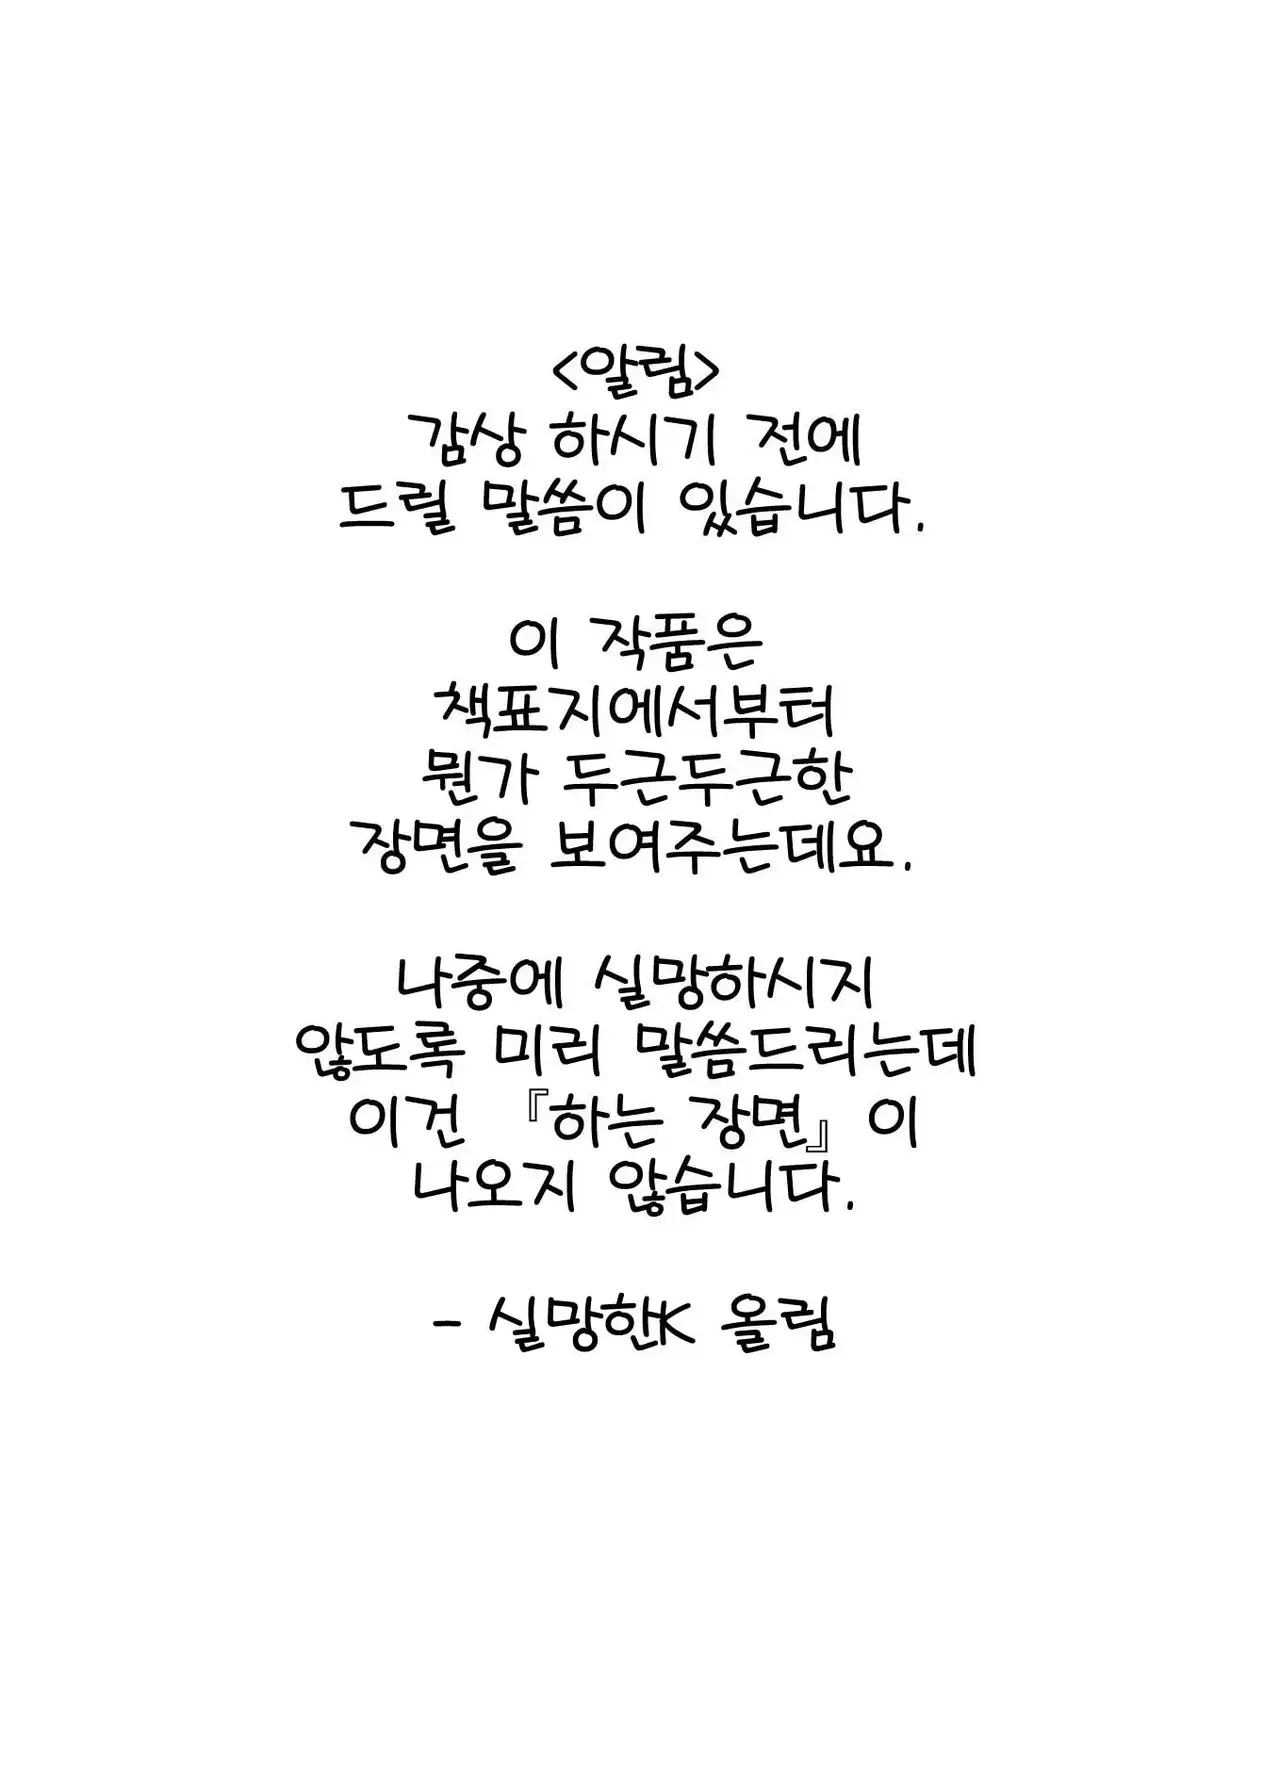 <알림>
감상 하시기 전에
드릴 말씀이 있습니다.
이 작품은
책표지에서부터
뭔가 두근두근한
장면을 보여주는데요.
나중에 실망하시지
않도록 미리 말씀드리는데
이건 『하는 장면』이
나오지 않습니다.
- 실망한K 올림